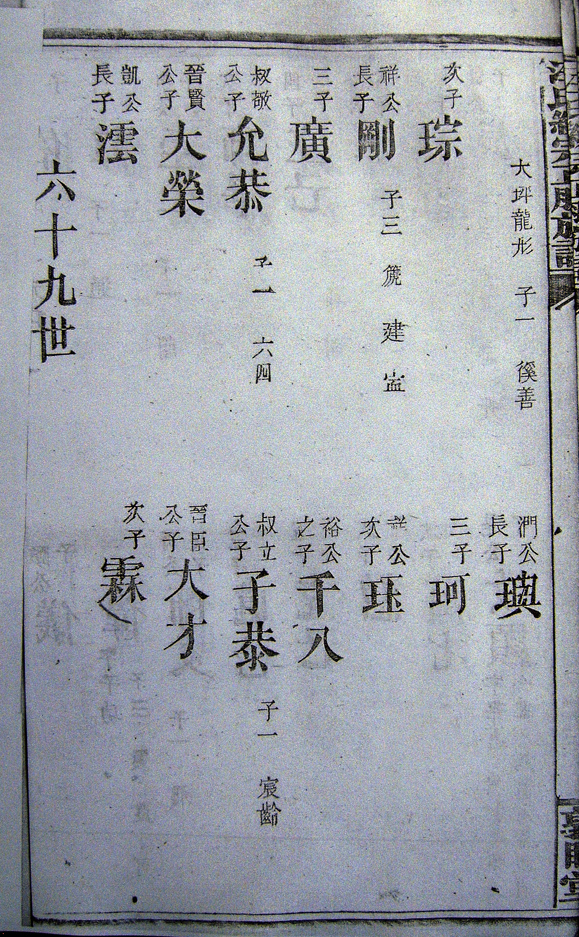 大坪龍形 子一 徯善
次子 琮
祥公長子 剛 子三 篪 建 寍
三子 廣
叔敬公子 允恭 子一 六四
晉賢公子 大榮
凱公長子 澐
澗公長子 璵
三子 珂
祥公次子 珏
裕公之子 千八
叔立公子 子恭 子一 宸齡
晉臣公子 大才
次子 霖
六十九世